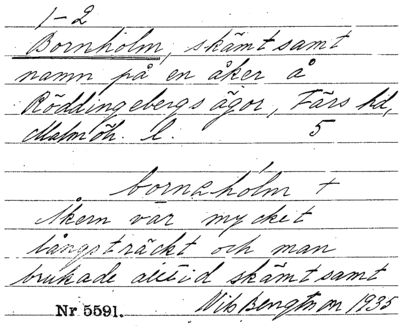 1-2
Bornholm, skämtsamt
namn på en åker å
Röddingebergs ägor, Färs hd,
Malmöh. l. 5
bornhólm +
Åkern var mycket
långsträckt och man
brukade alltid skämtsamt
Nr 5591. Nils Bengtsson 1935